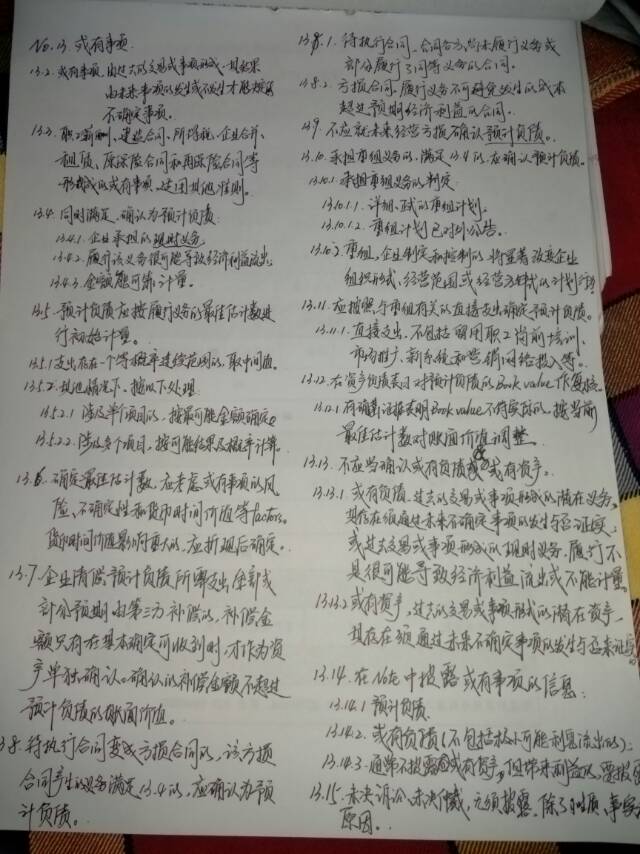 No.13. 或有事项
13.2. 或有事项,由过去的交易或事项形成,其结果
由未来事项的发生或不发生才能决定
不确定事项。
13.3. 职工薪酬、建造合同、所得税、企业合并、
租赁、原保险合同和再保险合同等
形成的或有事项,适用其他准则。
13.4. 同时满足,确认为预计负债:
13.4.1. 企业承担的现时义务
13.4.2. 履行该义务很可能导致经济利益流出
13.4.3. 金额能可靠计量。
13.5. 预计负债应按履行义务的最佳估计数进
行初始计量。
13.5.1 支出存在一个等概率连续范围的,取中间值。
13.5.2. 其他情况下,按以下处理
13.5.2.1 涉及单个项目的,按最可能金额确定。
13.5.2.2. 涉及多个项目,按可能结果及概率计算。
13.6. 确定最佳估计数,应考虑或有事项的风
险、不确定性和货币时间价值等factors。
货币时间价值影响重大的,应折现后确定。
13.7. 企业清偿预计负债所需支出全部或
部分预期由第三方补偿的,补偿金
额只有在基本确定可收到时,才作为资
产单独确认。确认的补偿金额不超过
预计负债的账面价值。
13.8. 待执行合同变成亏损合同的,该亏损
合同产生的义务满足13.4的,应确认为预
计负债。
13.8.1. 待执行合同,合同各方尚未履行义务或
部分履行了同等义务的合同。
13.8.2. 亏损合同,履行义务不可避免发生的成本
超过预期经济利益的合同。
13.9. 不应就未来经营亏损确认预计负债。
13.10. 承担重组义务的,满足13.4的,应确认预计负债。
13.10.1 承担重组义务的判定
13.10.1.1. 详细、正式的重组计划。
13.10.1.2. 重组计划已对外公告。
13.10.2. 重组,企业制定和控制的,将显著改变企业
组织形式、经营范围或经营方式的计划行为
13.11. 应按照与重组有关的直接支出确定预计负债。
13.11.1. 直接支出,不包括留用职工岗前培训、
市场推广、新系统和营销网络投入等。
13.12. 在资产负债表日对预计负债的Book value作复核。
13.12.1 有确凿证据表明Book value不符实际的,按当前
最佳估计数对账面价值调整。
13.13. 不应当确认或有负债&或有资产。
13.13.1. 或有负债,过去的交易或事项形成的潜在义务,
其存在须通过未来不确定事项的发生与否证实;
或过去交易或事项形成的现时义务,履行不
是很可能导致经济利益流出或不能计量。
13.13.2 或有资产,过去的交易或事项形成的潜在资产,
其存在须通过未来不确定事项的发生与否来证实。
13.14. 在Note中披露或有事项的信息:
13.14.1 预计负债
13.14.2. 或有负债(不包括极小可能利益流出的);
13.14.3. 通常不披露或有资产,但带来利益的,要披露
13.15. 未决诉讼、未决仲裁,无须披露,除了性质、事实
原因。